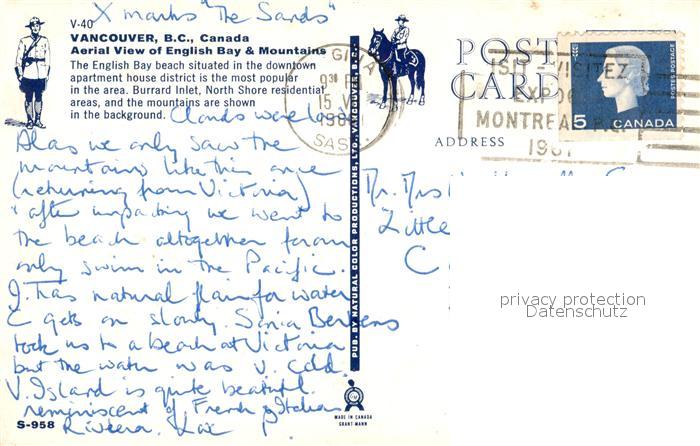 X marks "The Sands"
V-40
VANCOUVER, B.C., Canada
Aerial View of English Bay & Mountains
The English Bay beach situated in the downtown
apartment house district is the most popular
in the area. Burrard Inlet, North Shore residential
areas, and the mountains are shown
in the background. Clouds were low
Alas we only saw the
mountains like this once
(returning from Victoria)
after unpacking we went to
the beach altogether for our
only swim in the Pacific.
J. has natural flair for water
C gets on slowly. Sonia
took us to a beach at Victoria
but the water was v. cold.
V. Island is quite beautiful
reminiscent of French & Italian
Riviera.
S-958
PUB. BY NATURAL COLOR PRODUCTIONS, LTD., VANCOUVER, B.C.
MADE IN CANADA
GRANT MANN
POST
CARD
ADDRESS
GINA
15
SASK
VISIT - VISITEZ
EXPO 67
MONTREAL P.Q.
1967
5 CANADA
POSTES POSTAGE
Mr. Mrs
Little
C
privacy protection
Datenschutz